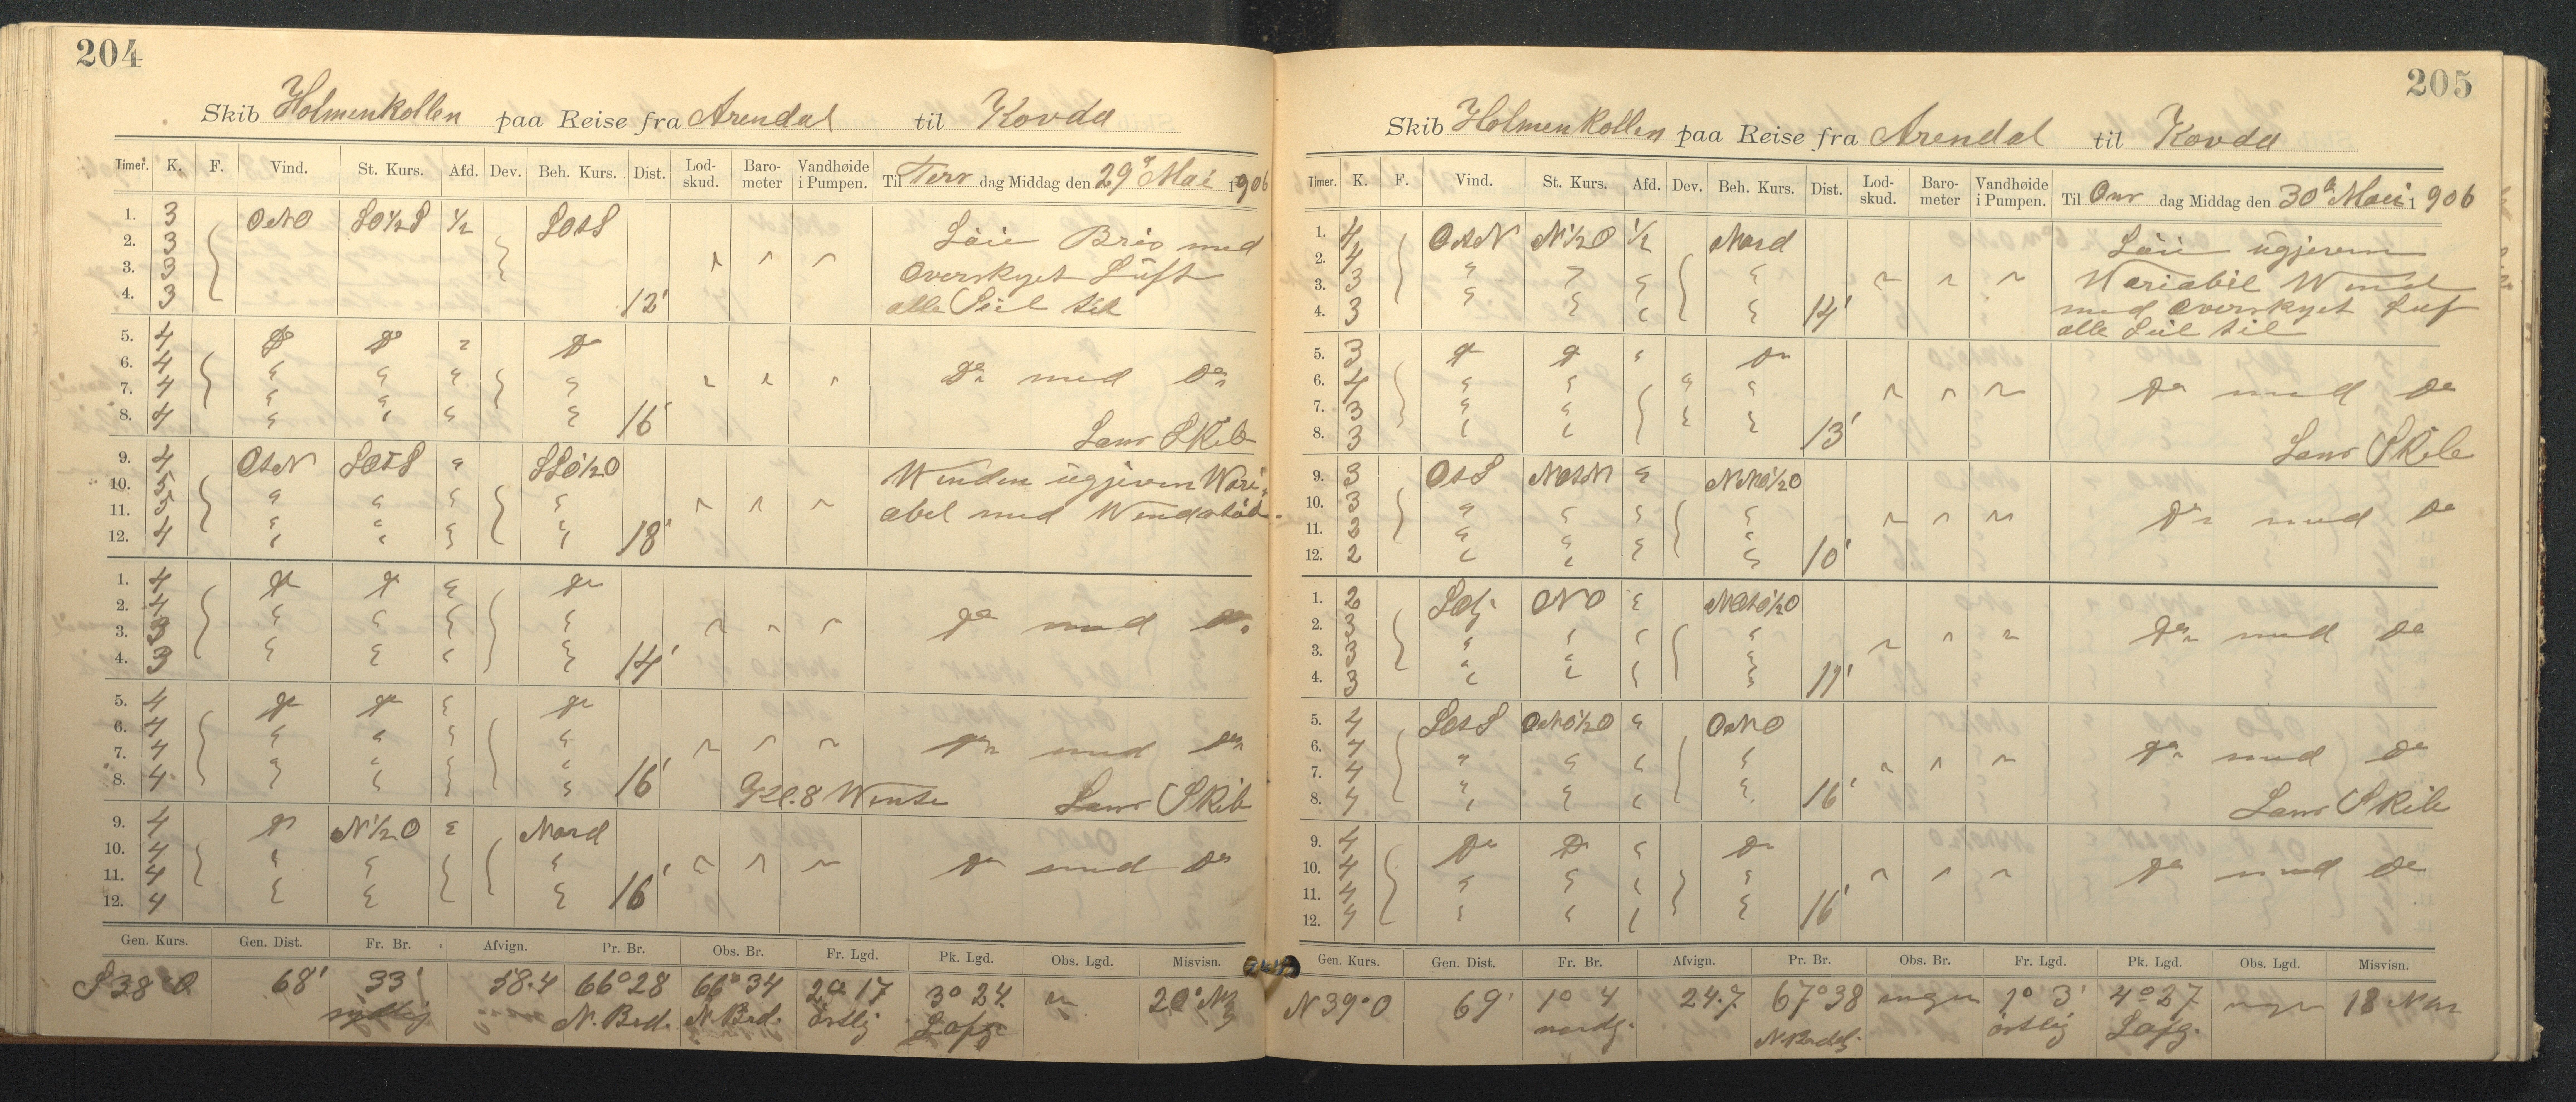 204
Skib Holmenkollen paa Reise fra Arendal til Kovda
Timer. K. F. Vind. St. Kurs. Afd. Dev. Beh. Kurs. Dist. Lod-skud. Baro-meter Vandhøide i Pumpen. Til Tirs dag Middag den 29 Mai 1906
1. 3 ONO SO½S ½ SOtS
2. 3 Løie Bris med
3. 3 Overskyet Luft
4. 3 12' alle Seil til
5. 4 Do Do " Do
6. 4 " "
7. 4 " " " " Do med Do
8. 4 " " " " 16' Lens Skib
9. 4 OtN SOtS " SSO½O
10. 5 " " " " Winden ugjevn Wari-
11. 5 " " " " abel med
12. 4 " " " " 18'
1. 4 Do Do " Do
2. 4 " " " "
3. 3 Do med Do
4. 3 " " " " 14'
5. 4 Do Do " Do
6. 4 " " " "
7. 4 " Do med Do
8. 4 " " " " 16' Kl. 8 Wendte Lens Skib
9. 4 Do N½O " Nord
10. 4 " " " "
11. 4 Do med Do
12. 4 " " " 16'
Gen. Kurs. Gen. Dist. Fr. Br. Afvign. Pr. Br. Obs. Br. Fr. Lgd. Pk. Lgd. Obs. Lgd. Misvisn.
S38°O 68' 33' 58.4 66°28 66°34 2° 17 3° 24
sydlig N. Brd. N. Brd. østlig
205
Skib Holmenkollen paa Reise fra Arendal til Kovda
Timer. K. F. Vind. St. Kurs. Afd. Dev. Beh. Kurs. Dist. Lod-skud. Baro-meter Vandhøide i Pumpen. Til Ons dag Middag den 30 Mai 1906
1. 4 OtN N½O ½ Nord Løie ugjevn
2. 4 " " " " Wariabil Wind
3. 3 " " " med Overskyet Luf
4. 3 " " " 14' alle Seil til
5. 3 Do Do " Do
6. 4 " " " " Do med Do
7. 3 " "
8. 3 " " " 13' Lens Skib
9. 3 OtS NOtN " NNO½O
10. 3 " " " "
11. 2 " " Do med Do
12. 2 " " " " 10'
1. 2 Solj. ONO " NOtO½O
2. 3 " " " "
3. 3 " " " Do med Do
4. 3 " " " " 11'
5. 4 SOtS ONO½O " ONO
6. 4 " " " "
7. 4 Do med Do
8. 4 " " " " 16' Lens Skib
9. 4 Do Do " Do
10. 4 " Do med Do
11. 4 " " "
12. 4 " " " " 16'
Gen. Kurs. Gen. Dist. Fr. Br. Afvign. Pr. Br. Obs. Br. Fr. Lgd. Pk. Lgd. Obs. Lgd. Misvisn.
N39°O 69' 1° 4 24.7 67°38 ingen 1° 3' 4°27 ingen 18
nordg. østlig